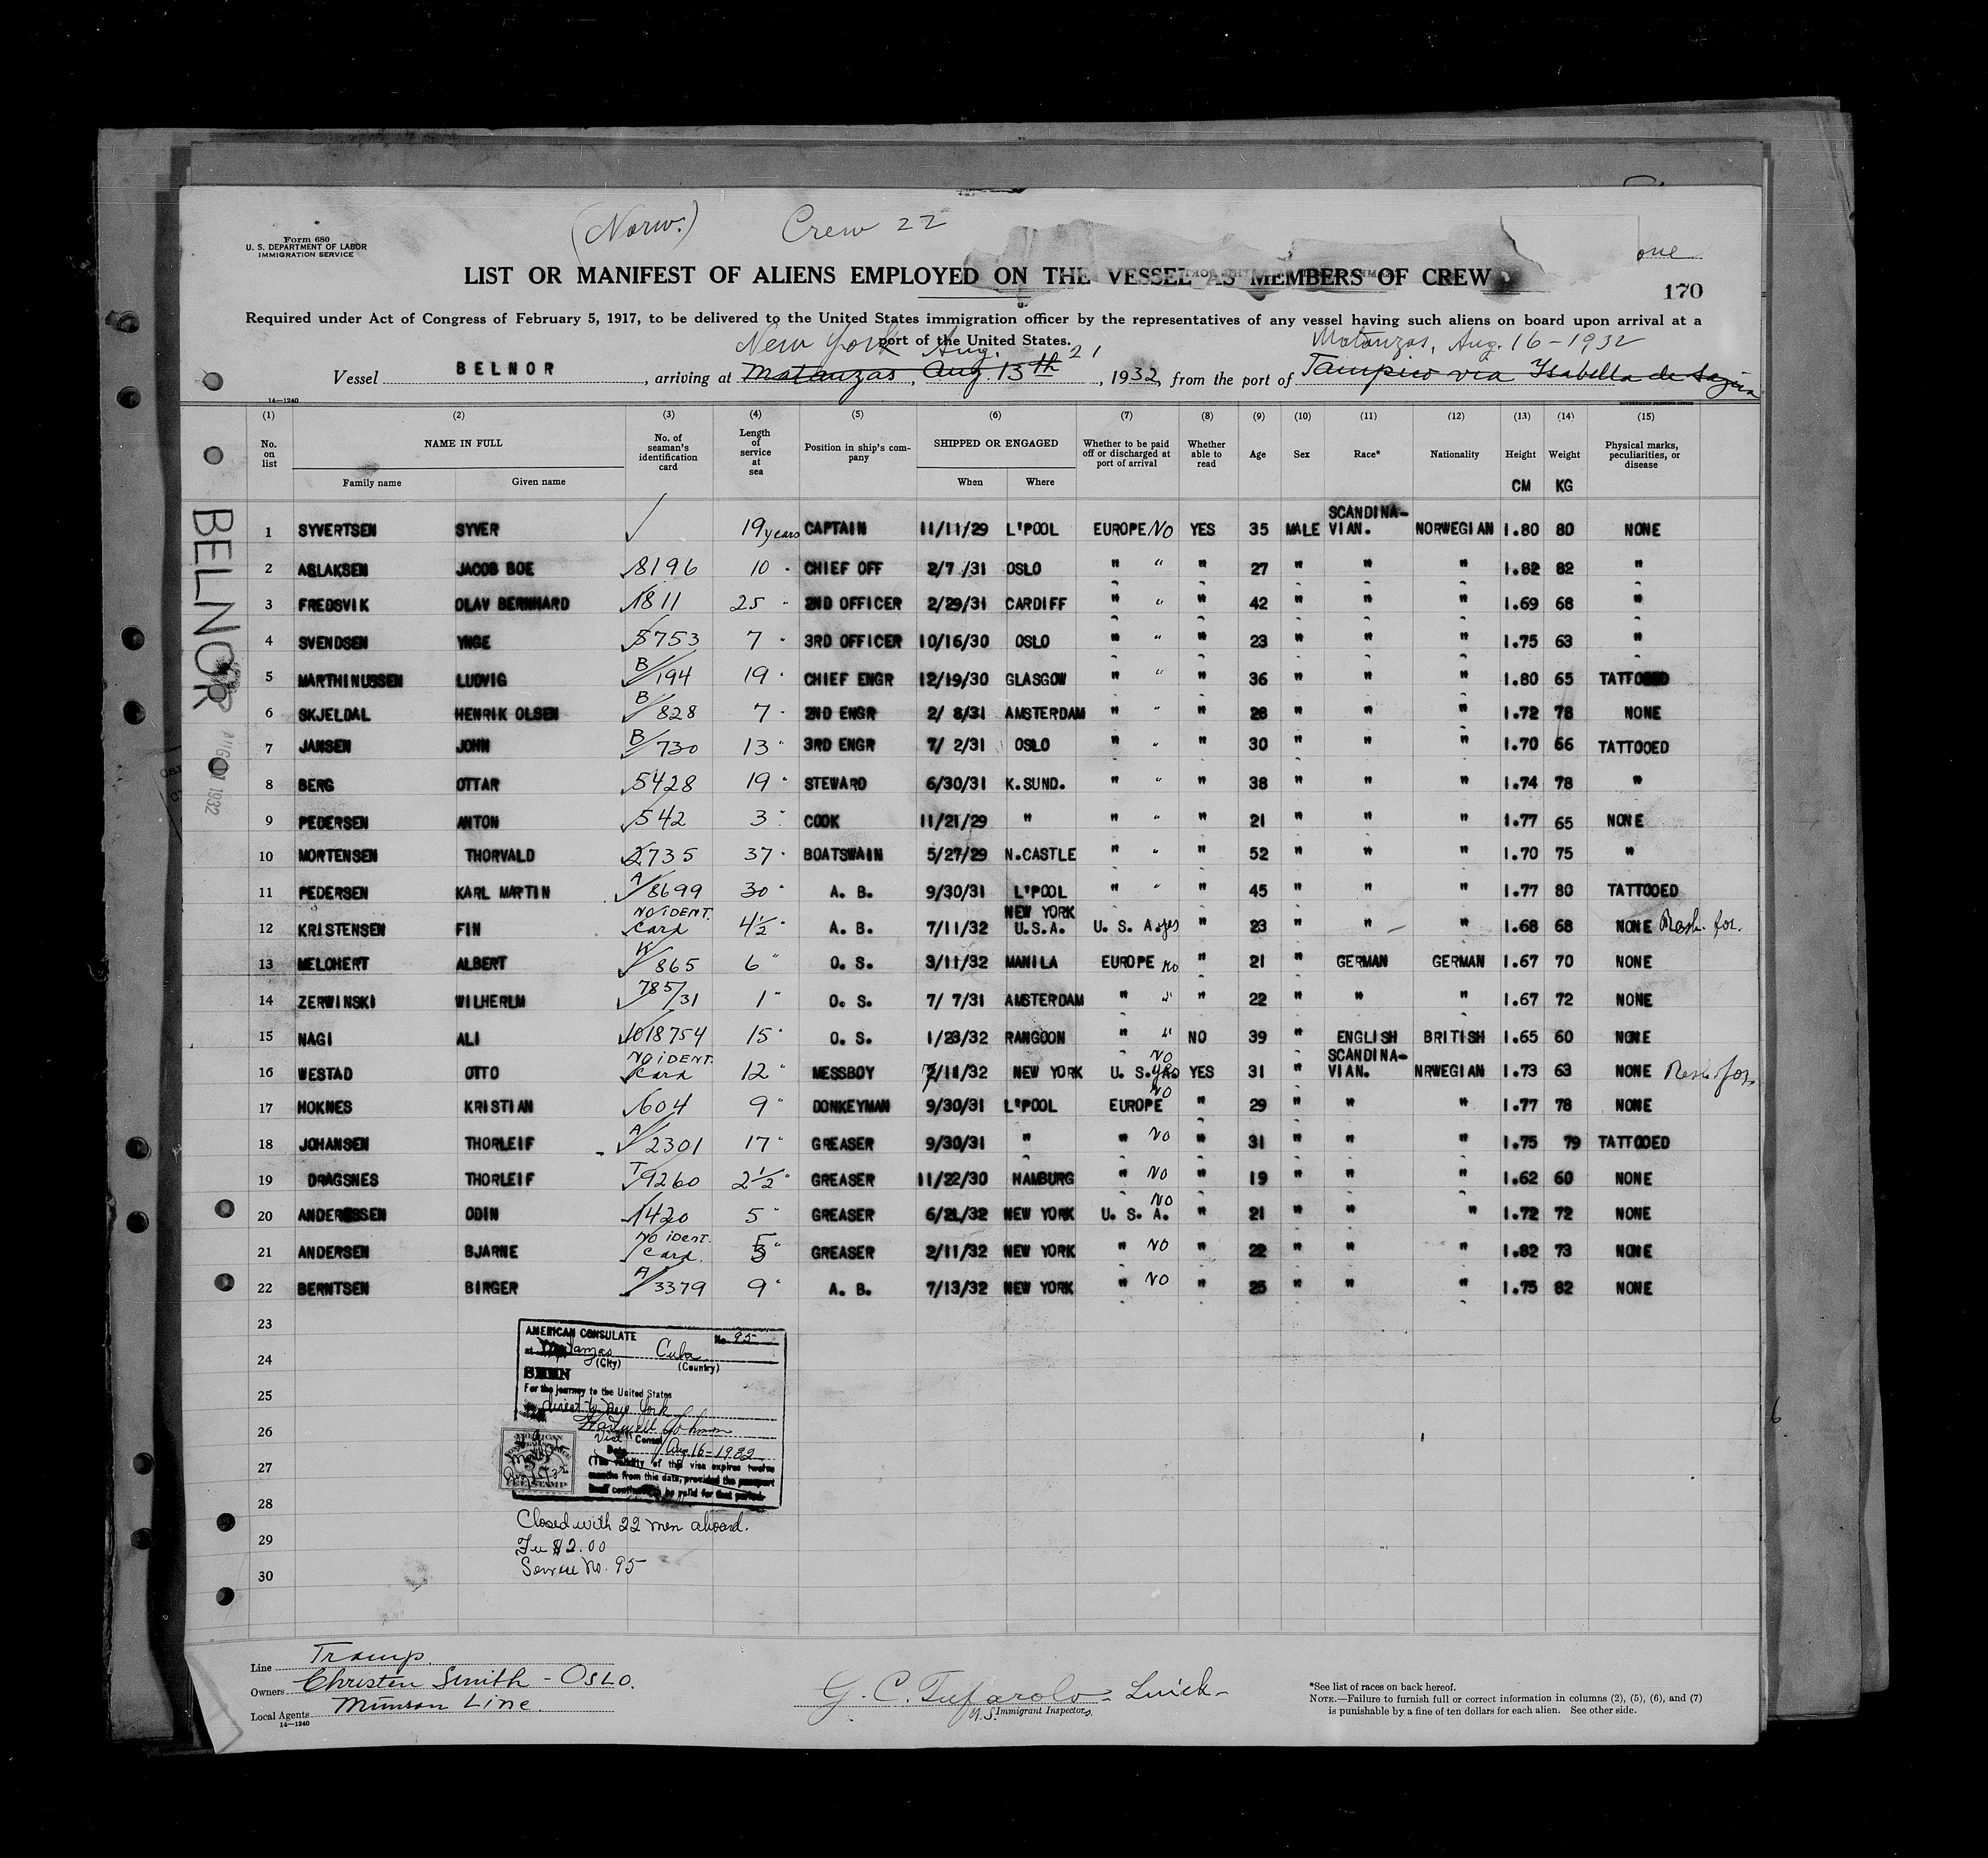 (Norw.) Crew 22
one
Form 680
U. S. DEPARTMENT OF LABOR
IMMIGRATION SERVICE
LIST OR MANIFEST OF ALIENS EMPLOYED ON THE VESSEL AS MEMBERS OF CREW
170
Required under Act of Congress of February 5, 1917, to be delivered to the United States immigration officer by the representatives of any vessel having such aliens on board upon arrival at a
port of the United States.
New York Aug. 21 Matanzas, Aug. 16-1932
Vessel BELNOR, arriving at Matanzas, Aug. 13th, 1932, from the port of Tampico via Isabella de Sagua
14—1240
(1) (2) (3) (4) (5) (6) (7) (8) (9) (10) (11) (12) (13) (14) (15)
No. on list NAME IN FULL Family name Given name No. of seaman's identification card Length of service at sea Position in ship's company SHIPPED OR ENGAGED When Where Whether to be paid off or discharged at port of arrival Whether able to read Age Sex Race* Nationality Height CM Weight KG Physical marks, peculiarities, or disease
1 SYVERTSEN SYVER 19 years CAPTAIN 11/11/29 L'POOL EUROPE NO YES 35 MALE SCANDINA-VIAN. NORWEGIAN 1.80 80 NONE
2 ASLAKSEN JACOB BOE 8196 10 " CHIEF OFF 2/7 /31 OSLO " " " 27 " " " 1.82 82 "
3 FREDSVIK OLAV BERNHARD 1811 25 " 2ND OFFICER 2/29/31 CARDIFF " " " 42 " " " 1.69 68 "
4 SVENDSEN YNGE 5753 7 " 3RD OFFICER 10/16/30 OSLO " " " 23 " " " 1.75 63 "
5 MARTHINUSSEN LUDVIG B/194 19 " CHIEF ENGR 12/19/30 GLASGOW " " " 36 " " " 1.80 65 TATTOOED
6 SKJELDAL HENRIK OLSEN B/828 7 " 2ND ENGR 2/ 8/31 AMSTERDAM " " " 28 " " " 1.72 78 NONE
7 JANSEN JOHN B/730 13 " 3RD ENGR 7/ 2/31 OSLO " " " 30 " " " 1.70 66 TATTOOED
8 BERG OTTAR 5428 19 " STEWARD 6/30/31 K.SUND. " " " 38 " " " 1.74 78 "
9 PEDERSEN ANTON 542 3 " COOK 11/21/29 " " " " 21 " " " 1.77 65 NONE
10 MORTENSEN THORVALD 2735 37 " BOATSWAIN 5/27/29 N.CASTLE " " " 52 " " " 1.70 75 "
11 PEDERSEN KARL MARTIN A/8699 30 " A. B. 9/30/31 L'POOL " " " 45 " " " 1.77 80 TATTOOED
12 KRISTENSEN FIN NO IDENT. Card 4½ " A. B. 7/11/32 NEW YORK U.S.A. U. S. A. yes " 23 " " " 1.68 68 NONE
13 MELCHERT ALBERT 865 6 " O. S. 3/11/32 MANILA EUROPE NO " 21 " GERMAN GERMAN 1.67 70 NONE
14 ZERWINSKI WILHERLM 785/31 1 " O. S. 7/ 7/31 AMSTERDAM " " " 22 " " " 1.67 72 NONE
15 NAGI ALI 1018754 15 " O. S. 1/23/32 RANGOON " " NO 39 " ENGLISH BRITISH 1.65 60 NONE
16 WESTAD OTTO NO IDENT. Card 12 " MESSBOY 2/11/32 NEW YORK U. S. NO YES 31 " SCANDINA-VIAN. NRWEGIAN 1.73 63 NONE
17 HOKNES KRISTIAN 604 9 " DONKEYMAN 9/30/31 L'POOL EUROPE NO " 29 " " " 1.77 78 NONE
18 JOHANSEN THORLEIF A/2301 17 " GREASER 9/30/31 " " NO " 31 " " " 1.75 79 TATTOOED
19 DRAGSNES THORLEIF T 9260 2½ " GREASER 11/22/30 HAMBURG " NO " 19 " " " 1.62 60 NONE
20 ANDERSSEN ODIN 1420 5 " GREASER 6/21/32 NEW YORK U. S. A. NO " 21 " " " 1.72 72 NONE
21 ANDERSEN BJARNE NO IDENT. Card. 5 " GREASER 2/11/32 NEW YORK " NO " 22 " " " 1.82 73 NONE
22 BERNTSEN BIRGER A/3379 9 " A. B. 7/13/32 NEW YORK " NO " 25 " " " 1.75 82 NONE
23
24
25
26
27
28
29
30
BELNOR
AUG 21 1932
AMERICAN CONSULATE No. 95
at Matanzas Cuba
(City) (Country)
SEEN
For the journey to the United States
direct to New York
Hartwell Johnson
Vice Consul
Date Aug 16-1932
(The validity of this visa expires twelve
months from this date, provided the passport
itself continues to be valid for that period.
Closed with 22 men aboard.
Fee $2.00
Service No. 95
Line Tramp.
Owners Christen Smith - OSLO.
Local Agents Munson Line.
14—1240
G. C. Tufarolo
U.S. Immigrant Inspector.
*See list of races on back hereof.
NOTE.—Failure to furnish full or correct information in columns (2), (5), (6), and (7)
is punishable by a fine of ten dollars for each alien. See other side.